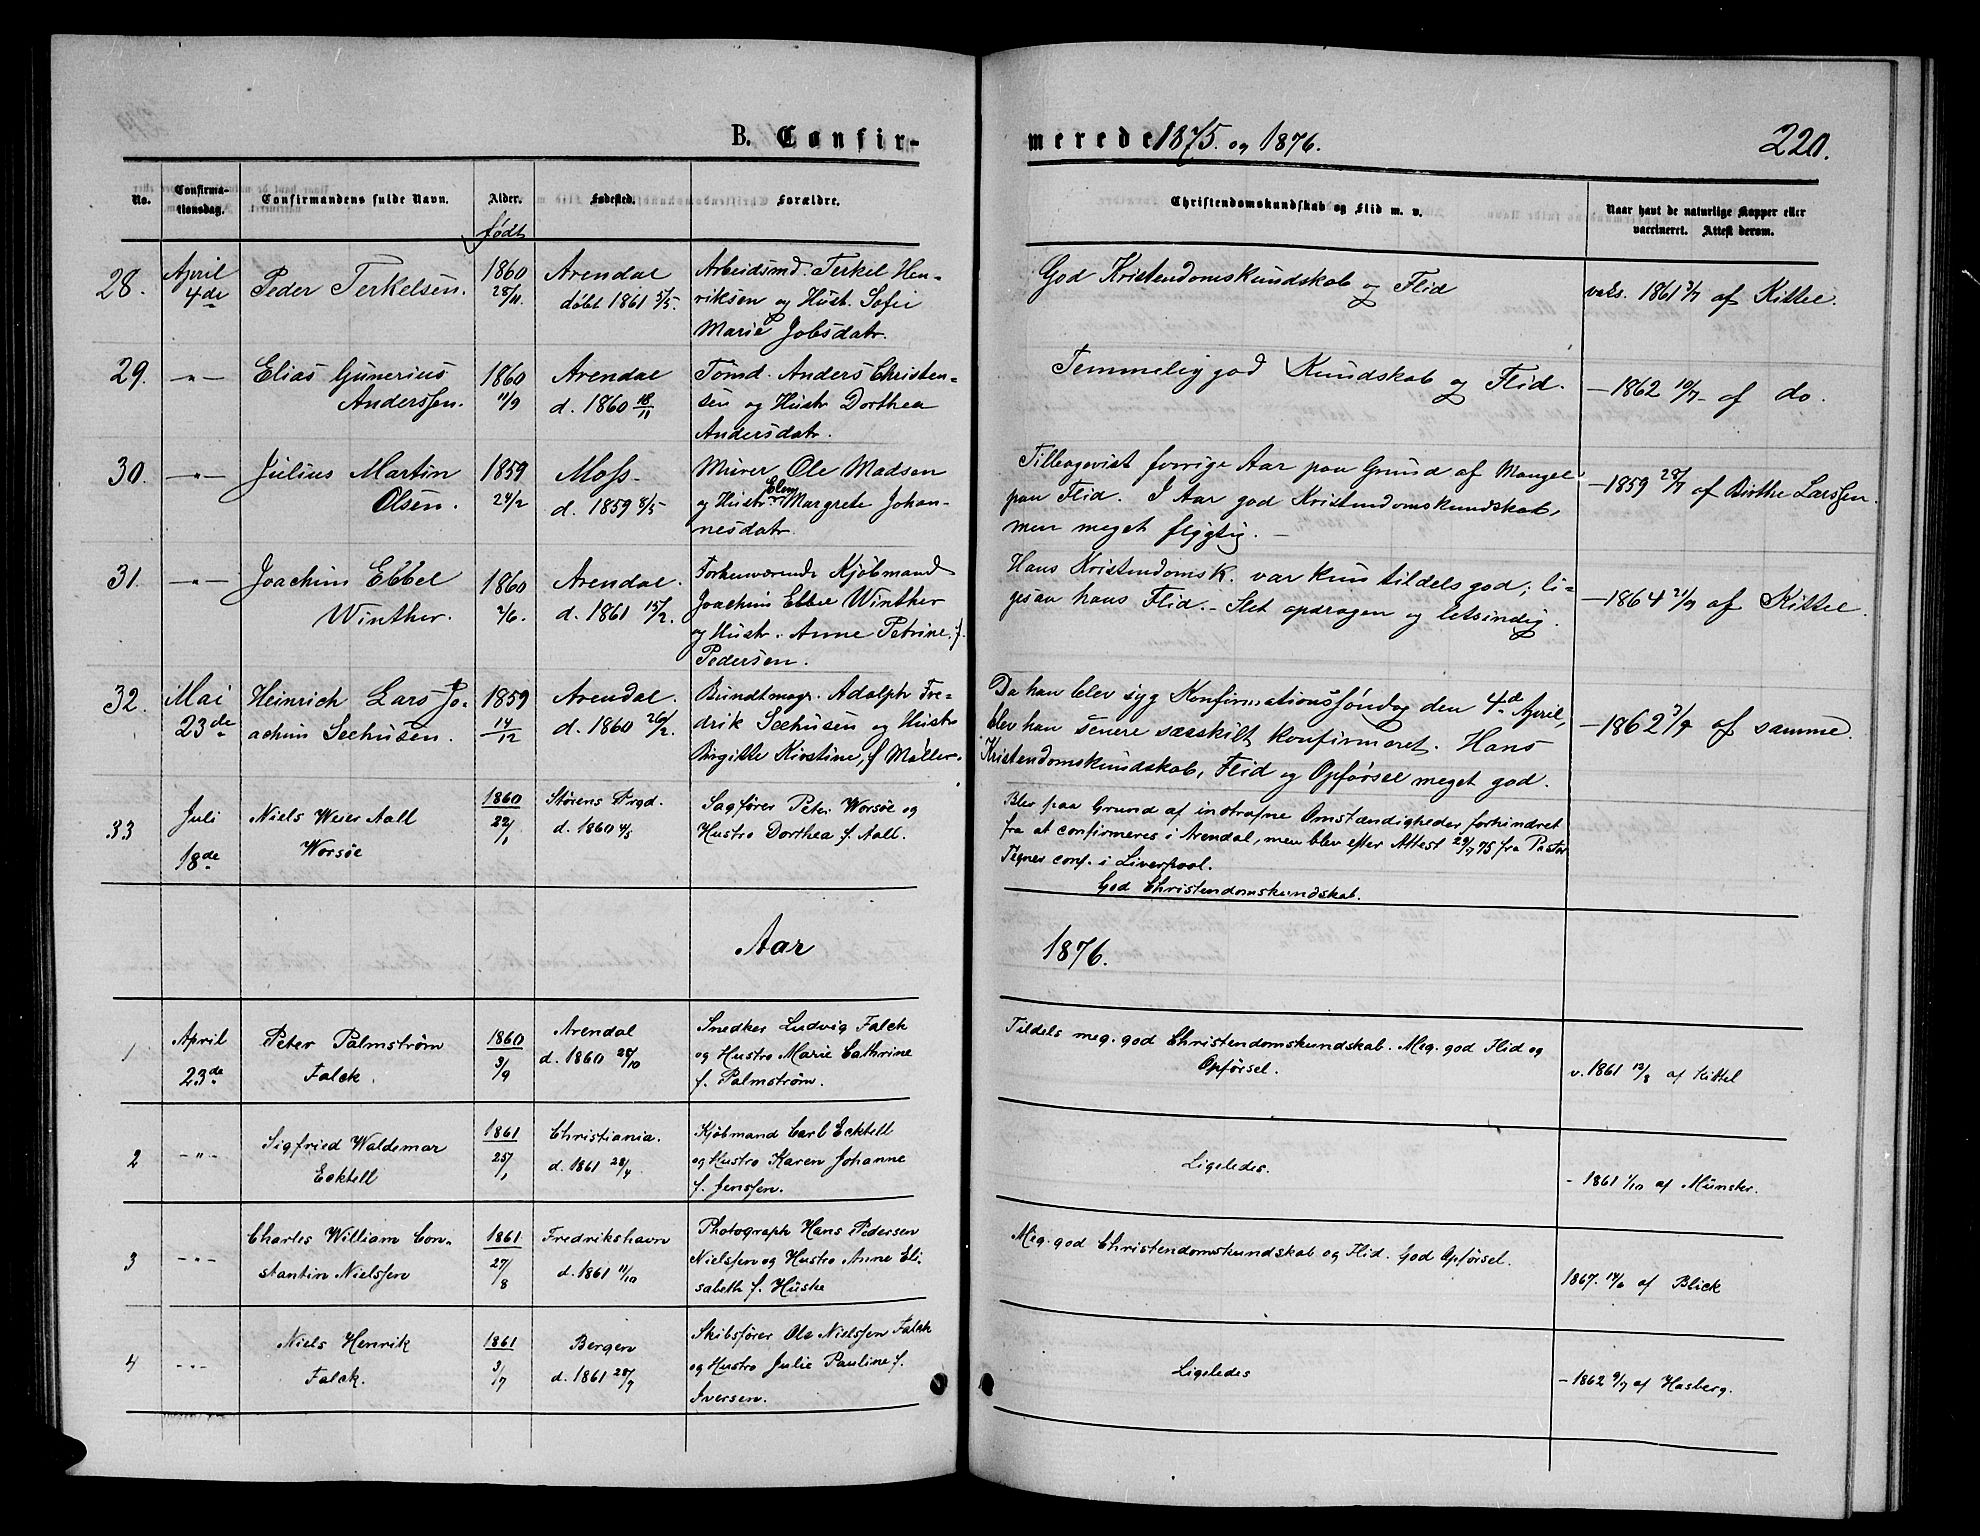 B. Confirmerede 1875. og 1876.
220.
No.
Confirmationsdag.
Confirmandens fulde Navn.
Alder. født
Fødested.
Forældre.
Christendomskundskab og Flid m. v.
Naar havt de naturlige Kopper eller vaccineret. Attest derom.
28.
April 4de
Peder Terkelsen.
1860 28/11.
Arendal
døbt 1861 5/5.
Arbeidsmd. Terkel Hen-
riksen og Hust. Sofie
Marie Jobsdatr.
God Kristendomskundskab og Flid
vaks. 1861 3/7 af Kittel.
29.
-"-
Elias Gunerius
Anderssen.
1860 11/9
Arendal
d. 1860 18/11
Tømd. Anders Christen-
sen og Hustr Dorthea
Andersdatr.
Temmelig god Kundskab og Flid.
- 1862 10/7 - af do.
30.
-"-
Julius Martin
Olsen.
1859 24/2
Moss.
d. 1859 8/5
Murer Ole Madsen
og Hustr Elen Margrete Johan-
nesdatr.
Tilbagevist forrige Aar paa Grund af Mangel
paa Flid. I Aar god Kristendomskundskab,
men meget flygtig. -
- 1859 28/7 af Birthe Larssen.
31.
-"-
Joachim Ebbel
Winther.
1860 2/6.
Arendal.
d. 1861 15/2.
Forhenværende Kjøbmand
Joachim Ebbel Winther
og Hustr. Anne Petrine f.
Pedersen.
Hans Kristendomsk. var kun tildels god; li-
gesaa hans Flid. - Slet opdragen og letsindig.
- 1864 21/9 af Kittel.
32.
Mai 23de
Heinrich Lars Jo-
achim Seehusen.
1859 14/12
Arendal.
d. 1860 26/2.
Bundtmagr. Adolph Fre-
drik Seehusen og Hustr
Birgitte Kirstine, f Møller.
Da han blev syg Konfirmationssøndag den 4de April,
blev han senere særskilt konfirmeret. Hans
Kristendomskundskab, Flid og Opførsel meget god.
- 1862 3/7 af samme.
33
Juli 18de
Niels Weier Aall
Worsøe
1860 22/1
Størens Prgd.
d. 1860 4/5
Sagfører Peter Worsøe og
Hustro Dorthea f. Aall.
Blev paa Grund af indtrafne Omstændigheder forhindret
fra at confirmeres i Arendal, men blev efter Attest 29/7 75 fra Pastor
Tegner conf. i Liverpool.
God Christendomskundskab.
Aar 1876.
1
April 23de
Peter Palmstrøm
Falck.
1860 3/9
Arendal
d. 1860 28/10
Snedker Ludvig Falck
og Hustro Marie Cathrine
f. Palmstrøm.
Tildels meg. god Christendomskundskab. Meg. god Flid og
Opførsel.
v. 1861 12/8 af Kittel
2
-"-
Sigfried Waldemar
Ecktell
1861 25/1
Christiania.
d. 1861 28/4
Kjøbmand Carl Ecktell
og Hustro Karen Johanne
f. Jenssen.
Ligeledes.
- 1861 1/10 af Münster.
3
-"-
Charles William Con-
stantin Nielssen
1861 27/8
Fredrikshavn
d. 1861 11/10
Photograph Hans Pedersen
Nielssen og Hustro Anne Eli-
sabeth f. Huske
Meg. god Christendomskundskab og Flid. God Opførsel.
1867. 14/6 af Blick
4
-"-
Niels Henrik
Falck.
1861 3/7
Bergen
d. 1861 28/7
Skibsfører Ole Nielssen Falck
og Hustro Julie Pauline f.
Iversen.
Ligeledes
- 1862 9/7 af Hasberg.